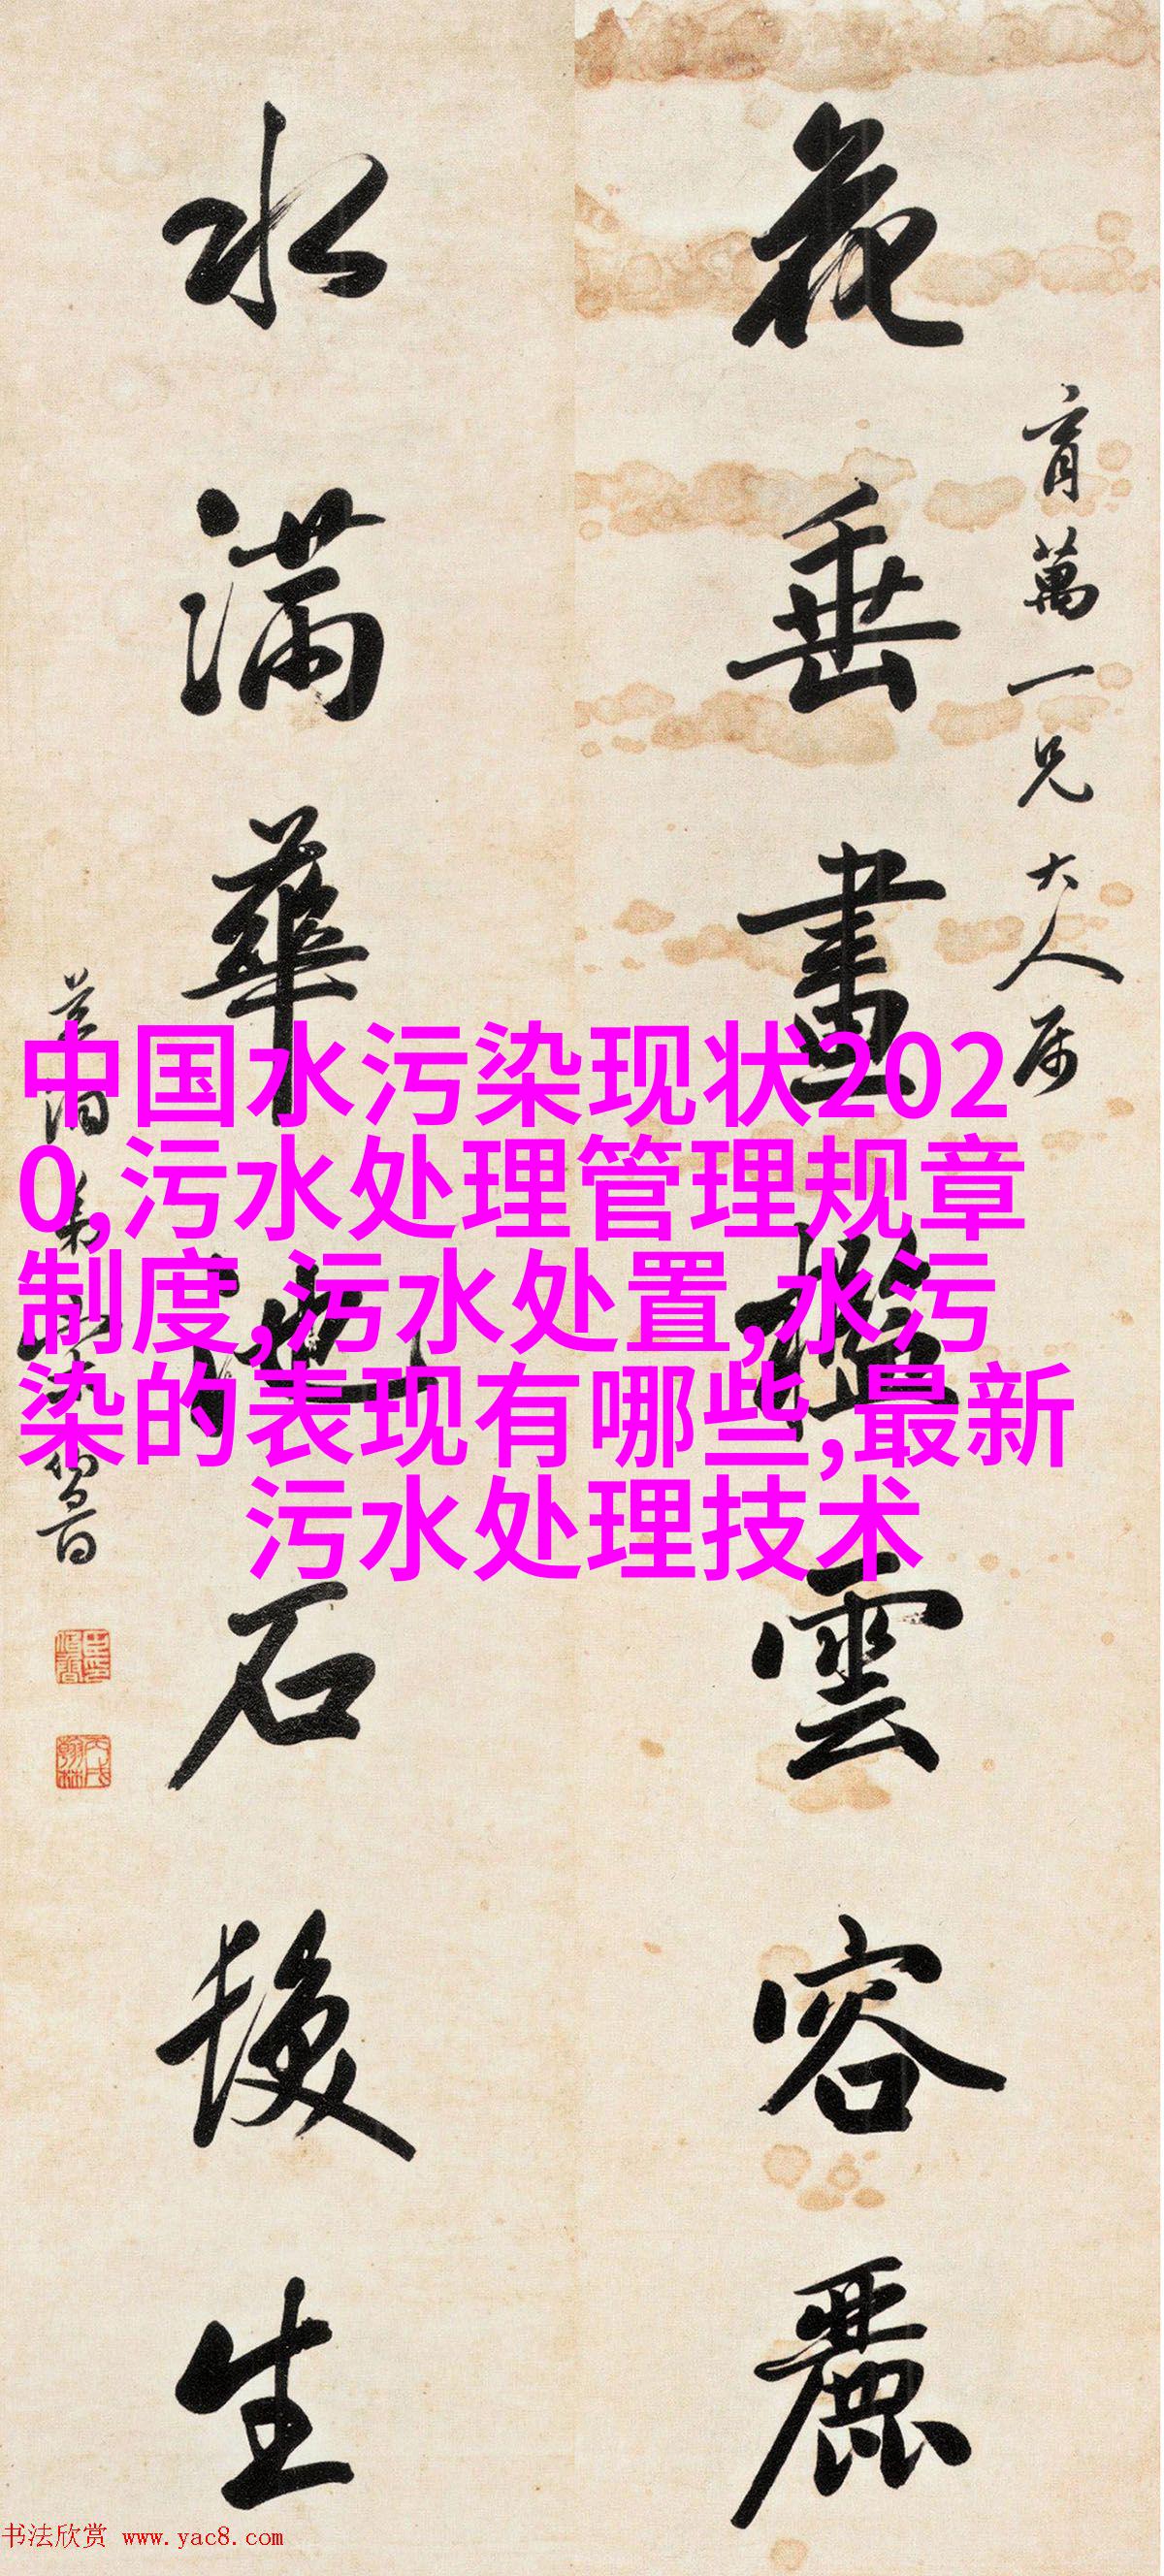 育萬一兄大人属
花垂畫檻雲容麗
水滿華池石生
中国水污染现状202
0,污水处理管理规章
制度,污水处置,水污
染的表现有哪些,最新
污水处理技术
书法欣赏 www.yac8.com